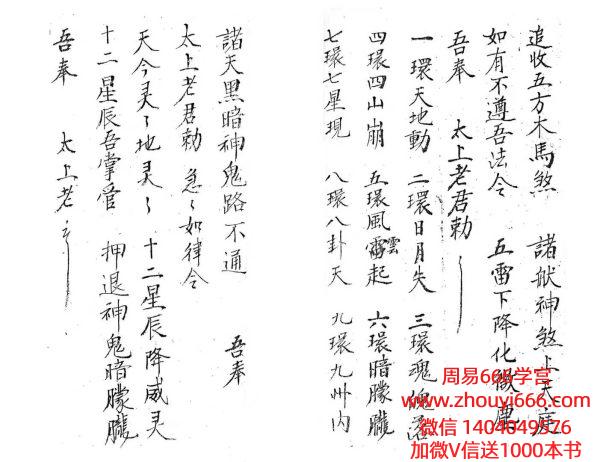 追收五方木馬煞 諸般神煞上天庭
如有不遵吾法令 五雷下降化微塵
吾奉 太上老君勅
一環天地動 二環日月失 三環魂魄落
四環四山崩 五環風雲起 六環暗朦朧
七環七星現 八環八卦天 九環九州内
諸天黑暗神鬼路不通 吾奉
太上老君勅 急〻如律令
天今灵〻地灵〻 十二星辰降威灵
十二星辰吾掌管 押退神鬼暗朦朧
吾奉 太上老〻
周易666学宫
www.zhouyi666.com
微信 1404849576
加微V信送1000本书